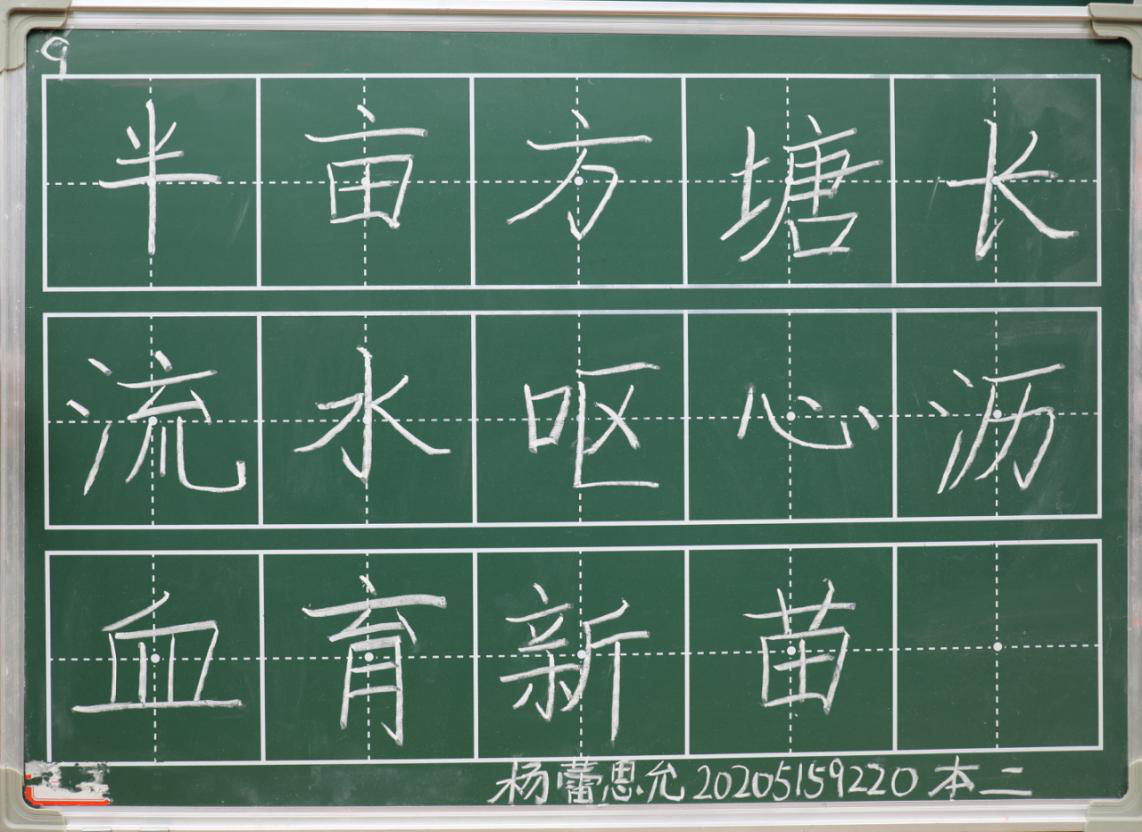 9
半亩方塘长
流水呕心沥
血育新苗
杨蕾思允 20205159220 本二